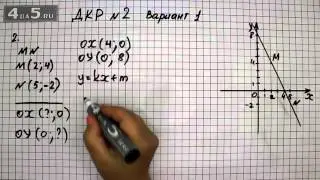 4a5.RU
ДКР №2 Вариант 1
2.
MN
M(2;4)
N(5;-2)
OX(?;0)
OY(0;?)
OX(4;0)
OY(0;8)
y=kx+m
y
8
M
0
1 2 3 4 5
N
x
-2